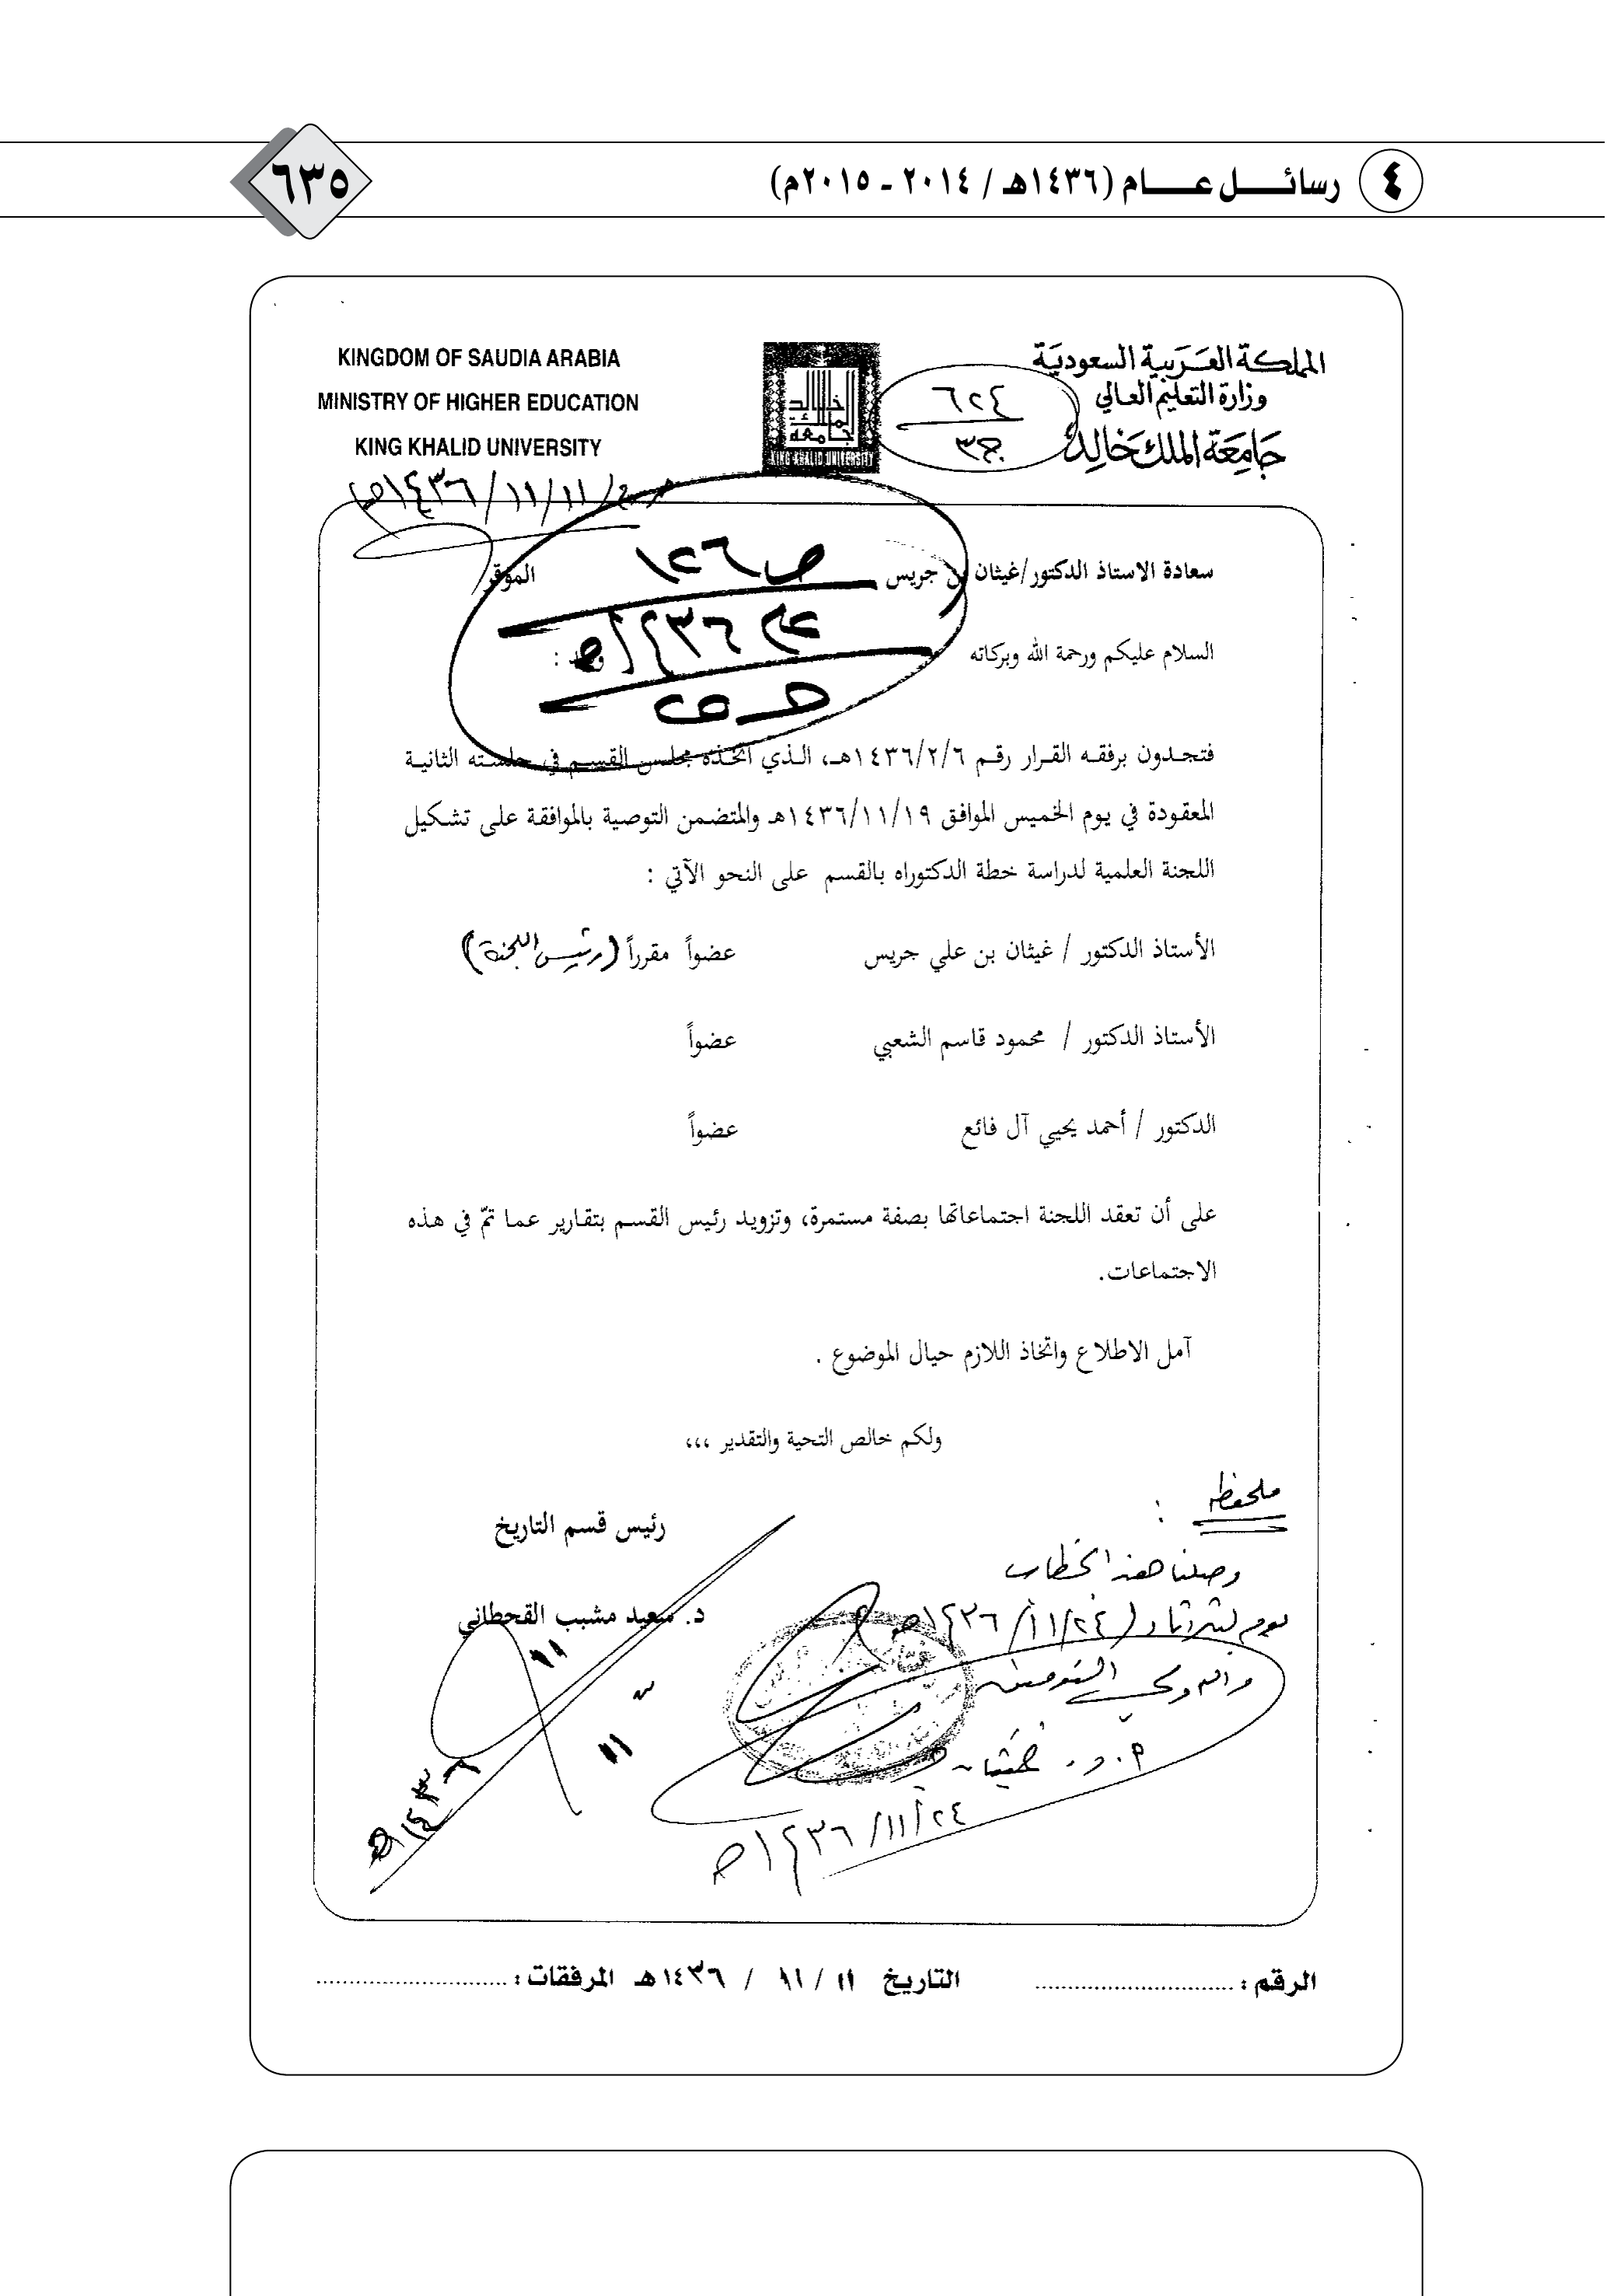 ٤ رسائـــل عـــام (١٤٣٦هـ / ٢٠١٤ - ٢٠١٥م)
٦٣٥
المملكة العربية السعودية
وزارة التعليم العالي
جامعة الملك خالد
KINGDOM OF SAUDIA ARABIA
MINISTRY OF HIGHER EDUCATION
KING KHALID UNIVERSITY
٦٢٤
جامعة الملك خالد
KING KHALID UNIVERSITY
ص ١٢٦
سعادة الاستاذ الدكتور/غيثان بن جريس الموقر
السلام عليكم ورحمة الله وبركاته :
فتجدون برفقه القرار رقم ١٤٣٦/٢/٦هـ، الذي اتخذه مجلس القسم في جلسته الثانية
المعقودة في يوم الخميس الموافق ١٤٣٦/١١/١٩هـ والمتضمن التوصية بالموافقة على تشكيل
اللجنة العلمية لدراسة خطة الدكتوراه بالقسم على النحو الآتي :
الأستاذ الدكتور / غيثان بن علي جريس عضواً مقرراً (رئيس اللجنة)
الأستاذ الدكتور / محمود قاسم الشعبي عضواً
الدكتور / أحمد يحيي آل فائع عضواً
على أن تعقد اللجنة اجتماعاتها بصفة مستمرة، وتزويد رئيس القسم بتقارير عما تمّ في هذه
الاجتماعات.
آمل الاطلاع واتخاذ اللازم حيال الموضوع .
ولكم خالص التحية والتقدير ،،،
رئيس قسم التاريخ
د. سعيد مشبب القحطاني
ملحفظه :
وصلنا هذا الخطاب
١٤٣٦/١١/٢٤هـ
والله ولي التوفيق
أ.د. غيثان
١٤٣٦/١١/٢٤هـ
الرقم : .............................. التاريخ ١١ / ١١ / ١٤٣٦هـ المرفقات : ..............................